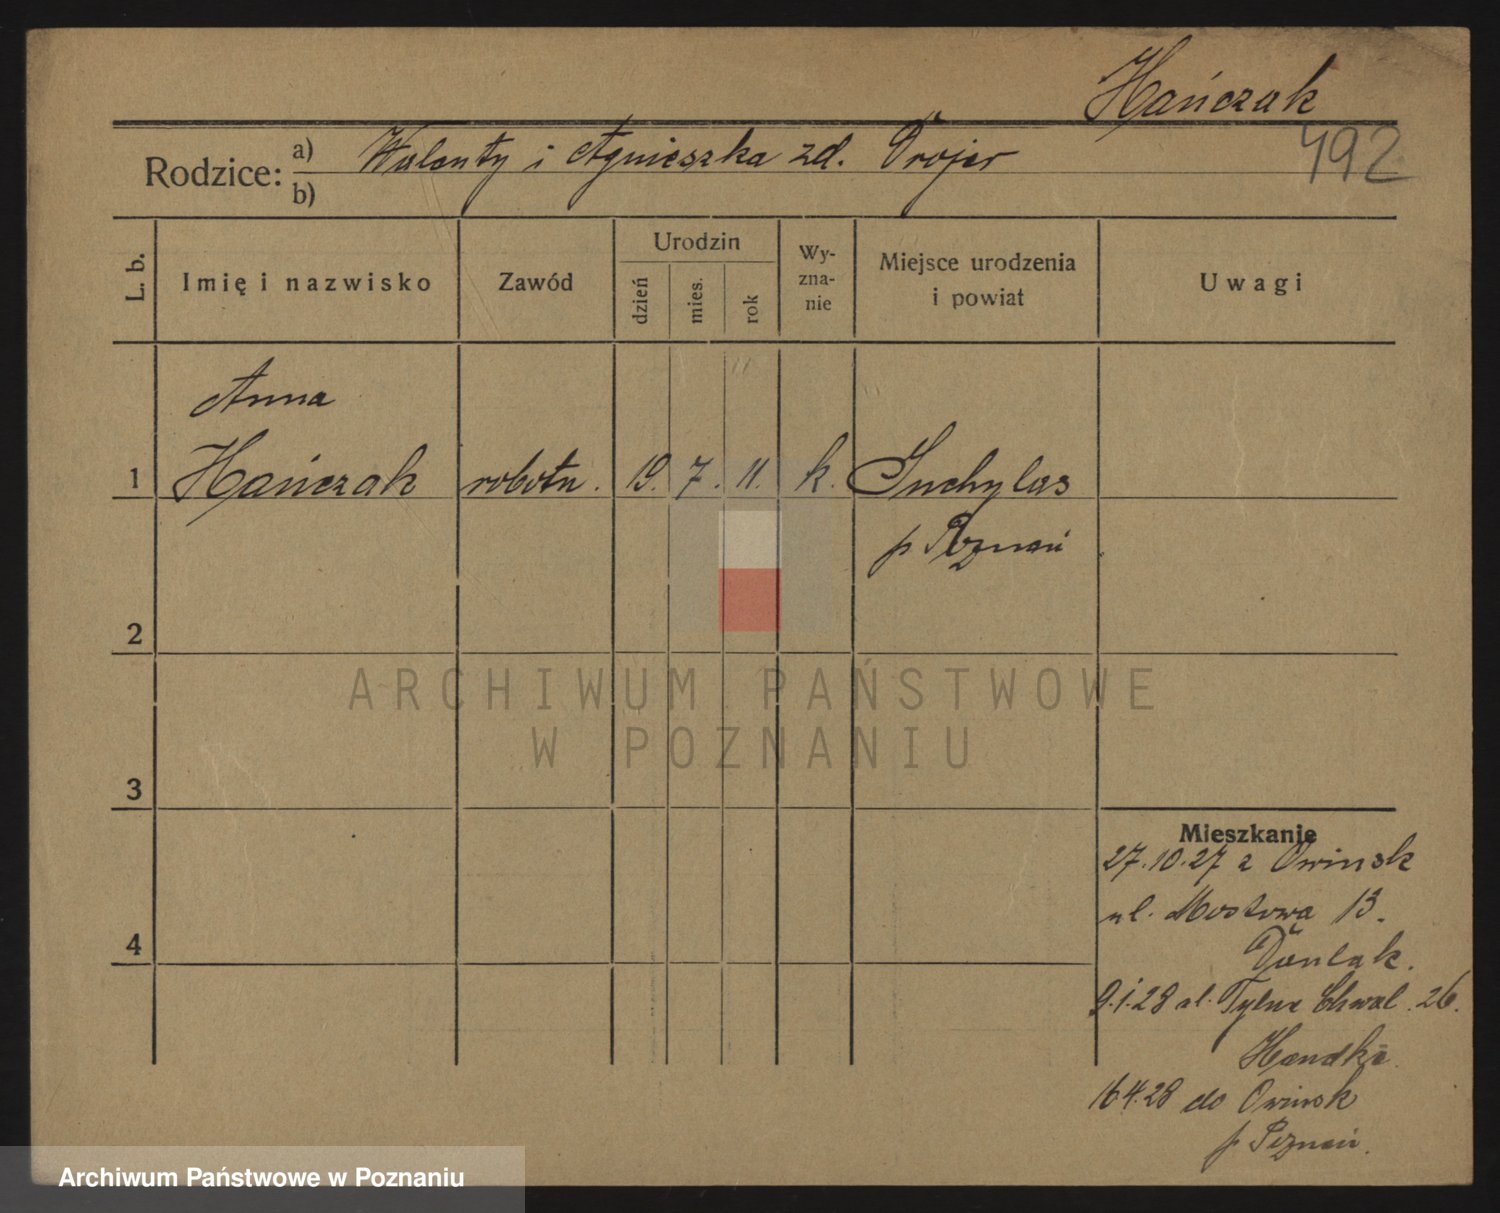 Hańczak
492
Rodzice: a) Walenty i Agnieszka zd. Drojer
b)
L. b.
Imię i nazwisko
Zawód
Urodzin
dzień
mies.
rok
Wy-
zna-
nie
Miejsce urodzenia
i powiat
Uwagi
Anna
1 Hańczak robotn. 19. 7. 11. k. Suchylas
p Poznań
2
ARCHIWUM PAŃSTWOWE
W POZNANIU
3
Mieszkanie
27.10.27 z Owinsk
ul. Mostowa 13.
4
9.1.28 ul. Tylne Chwal. 26.
Handke
16.4.28 do Owinsk
p Poznań.
Archiwum Państwowe w Poznaniu